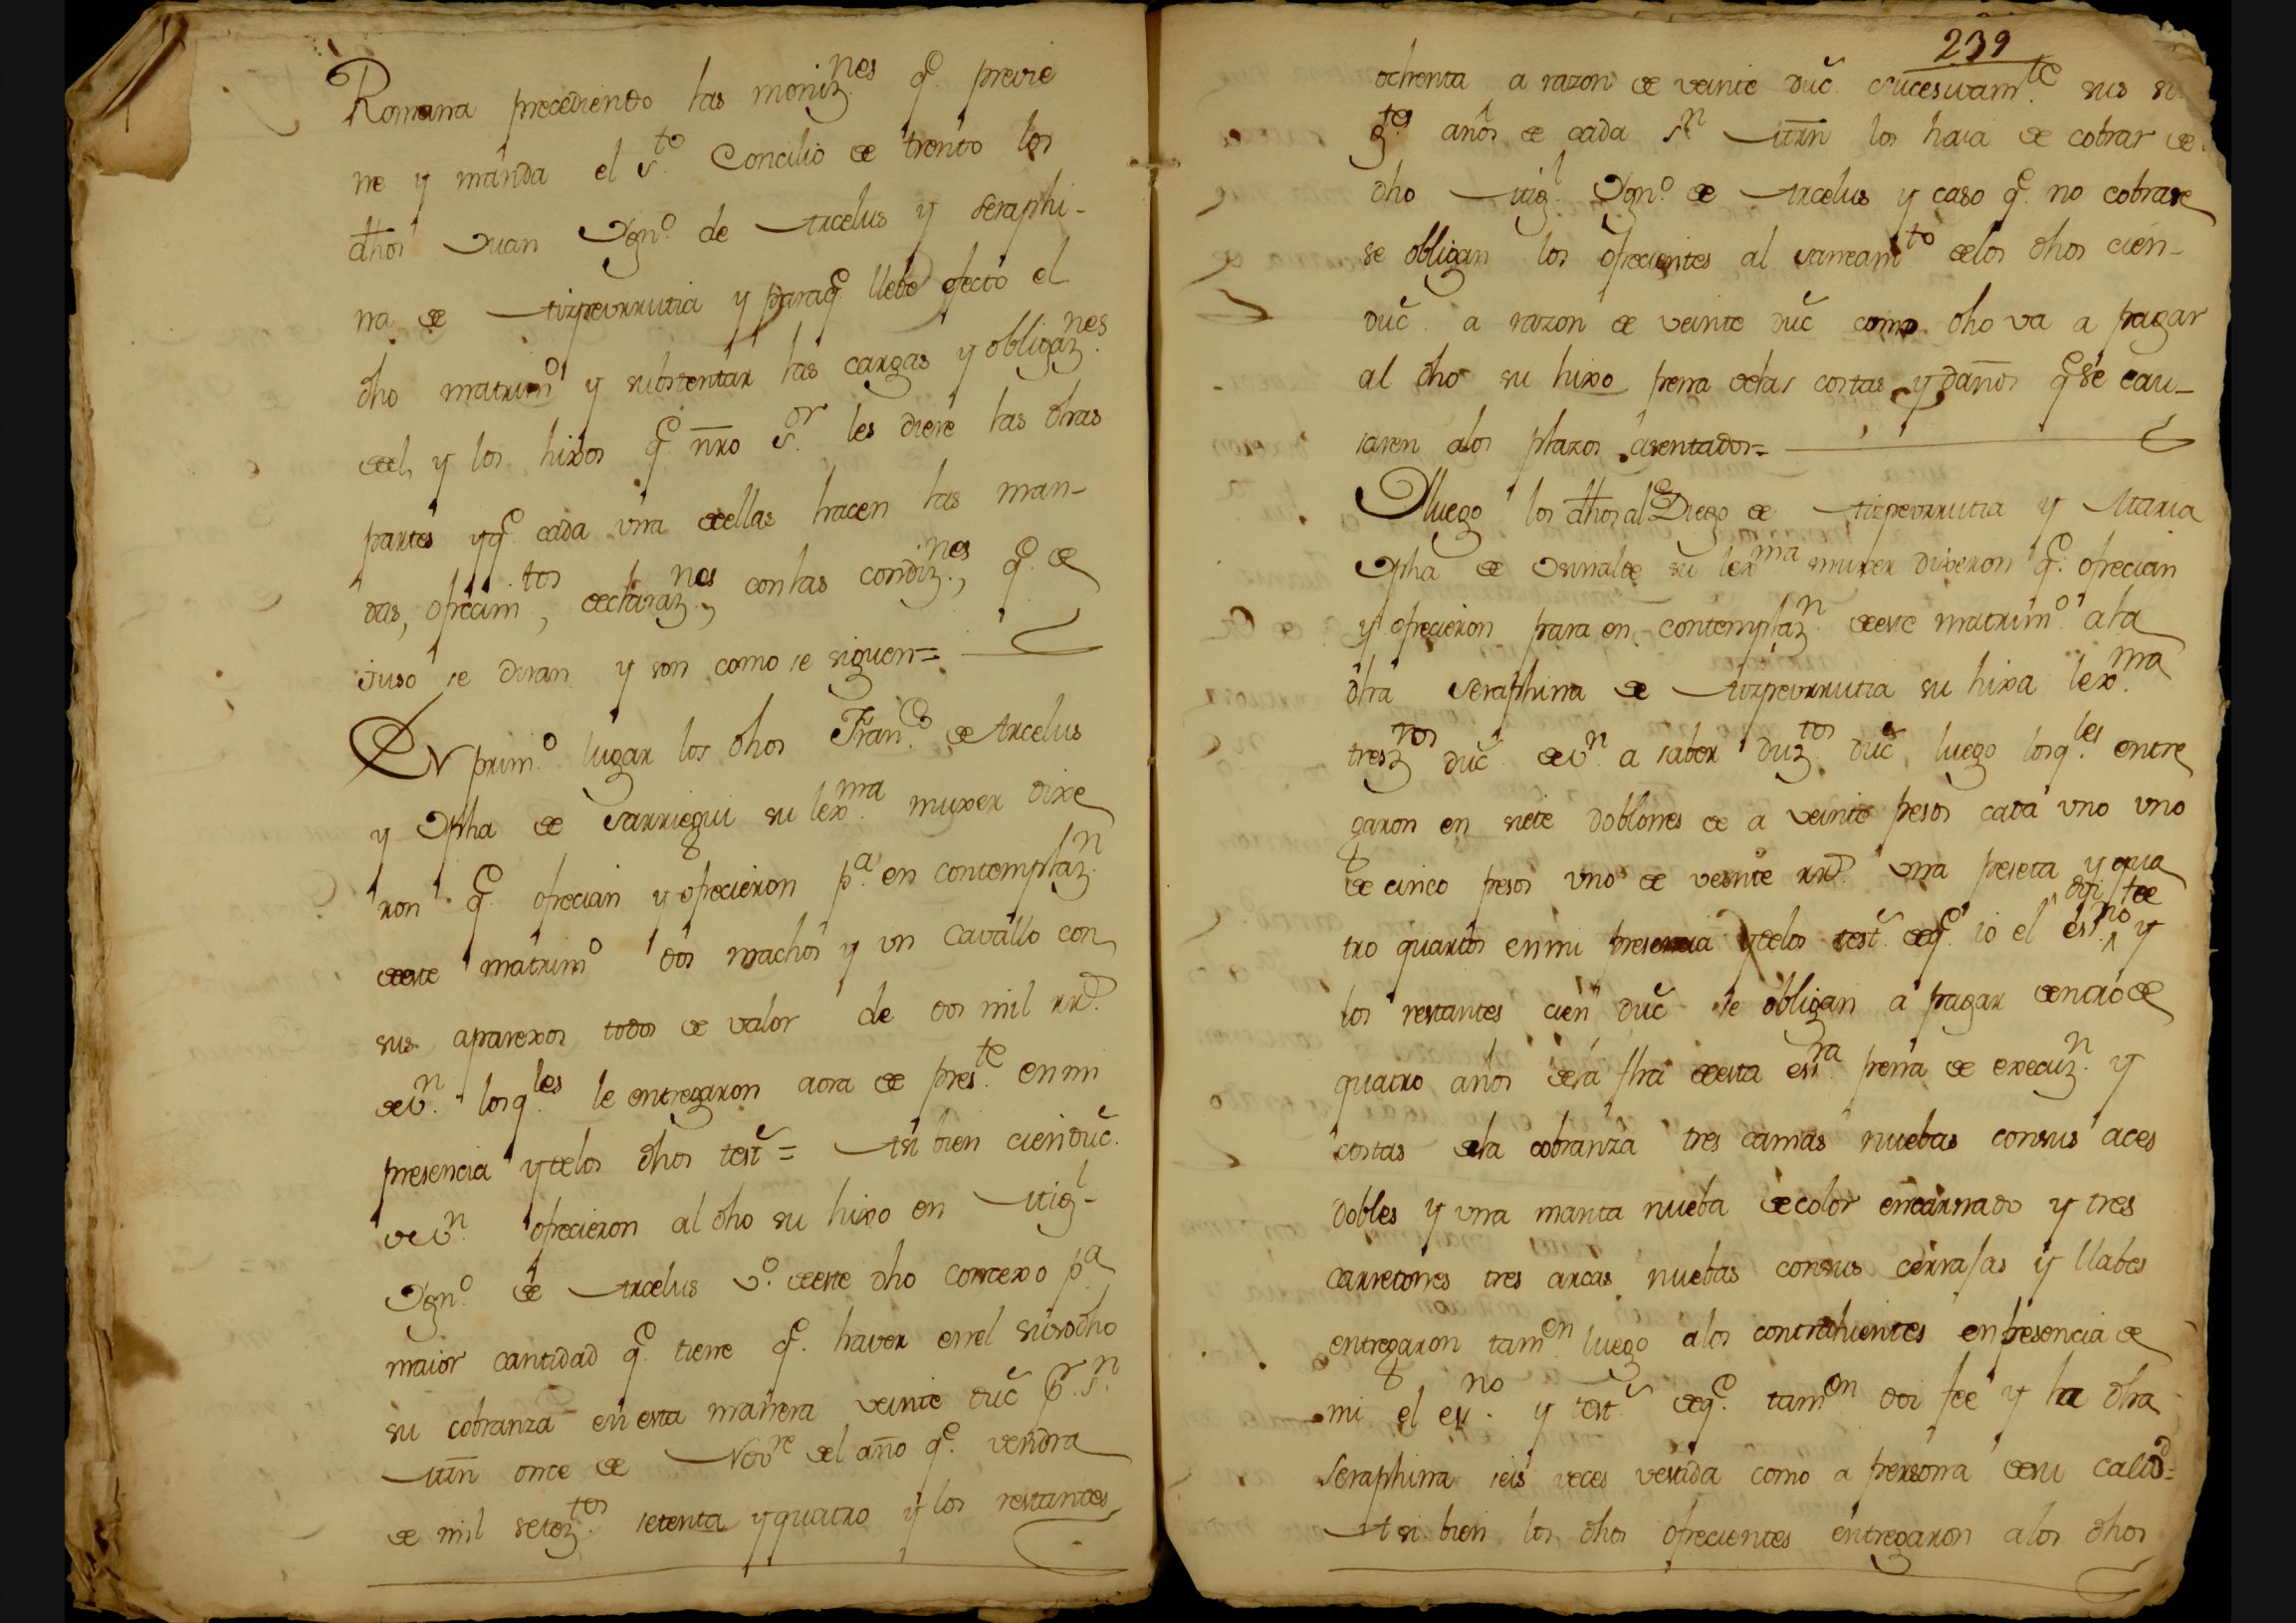 Romana precediendo las moniz.nes q.e previe
ne y manda el s.to Concilio de trento los
dhos Juan Ygn.o de Arcelus y Seraphi-
na de Aizpeurrutia y paraq.e llebe efecto el
dho matrim.o y substentar las cargas y obligaz.nes
del, y los hixos q.e nro s.or les diere las dhas
partes yq.e cada una dellas hacen las man-
das, ofrecim.tos, declaraz.nes, con las condiz.nes, q.e de
iuso se diran y son como se siguen=
EN prim.o lugar los dhos Fran.co de Arcelus
y Jpha de Sarriegui su lex.ma muxer dixe
ron q.e ofrecian y ofrecieron p.a en contemplaz.n
deeste matrim.o dos machos y un cavallo con
sus aparexos todos de valor de dos mil rr.d
dev.n losq.les le entregaron aora de pres.te en mi
presencia y delos dhos test.= Asi bien cien duc.
de v.n ofrecieron al dho su hixo en Mig.l
Ygn.o de Arcelus v.o deeste dho concexo p.a
maior cantidad q.e tiene q.e haver enel susodho
su cobranza en esta manera veinte duc p.r s.n
Mrn once de Nov.re del año q.e vendra
de mil setez.tos setenta y quatro y los restantes
239
ochenta a razon de veinte duc. sucesivam.te sus
g.tes años de cada s.n Mrn los haia de cobrar de
dho Mig.l Ygn.o de Arcelus y caso q.e no cobrare
se obligan los ofrecientes al saneam.to delos dhos cien-
duc. a razon de veinte duc como dho va a pagar
al dho su hixo pena delas costas y daños q.e se cau-
saren alos plazos asentados=
Y luego los dhos al.e Diego de Aizpeurrutia y Maria
Jpha de Osinalde su lex.ma muxer dixeron q.e ofrecian
y ofrecieron para en contemplaz.n deeste matrim.o ala
dha Seraphina de Aizpeurrutia su hixa lex.ma
tresz.tos duc. dev.n a saber duz.tos duc, luego losq.les entre
garon en siete doblones de a veinte pesos cada uno uno
de cinco pesos uno de veinte rr.d una peseta y qua
tro quartos en mi presencia y delos test. deq.e io el es.no doi fee y
los restantes cien duc se obligan a pagar dentro de
quatro años dela fha deesta es.ra pena de execuz.n y
costas dela cobranza tres camas nuebas consus aces
dobles y una manta nueba de color encarnado y tres
carretones tres arcas nuebas consus cerrajas y llabes
entregaron tam.en luego alos contrahientes en presencia de
mi el es.no y test. deq.e tam.en doi fee y la dha
Seraphina seis veces vestida como a persona desu calid.d=
Asi bien los dhos ofrecientes entregaron alos dhos